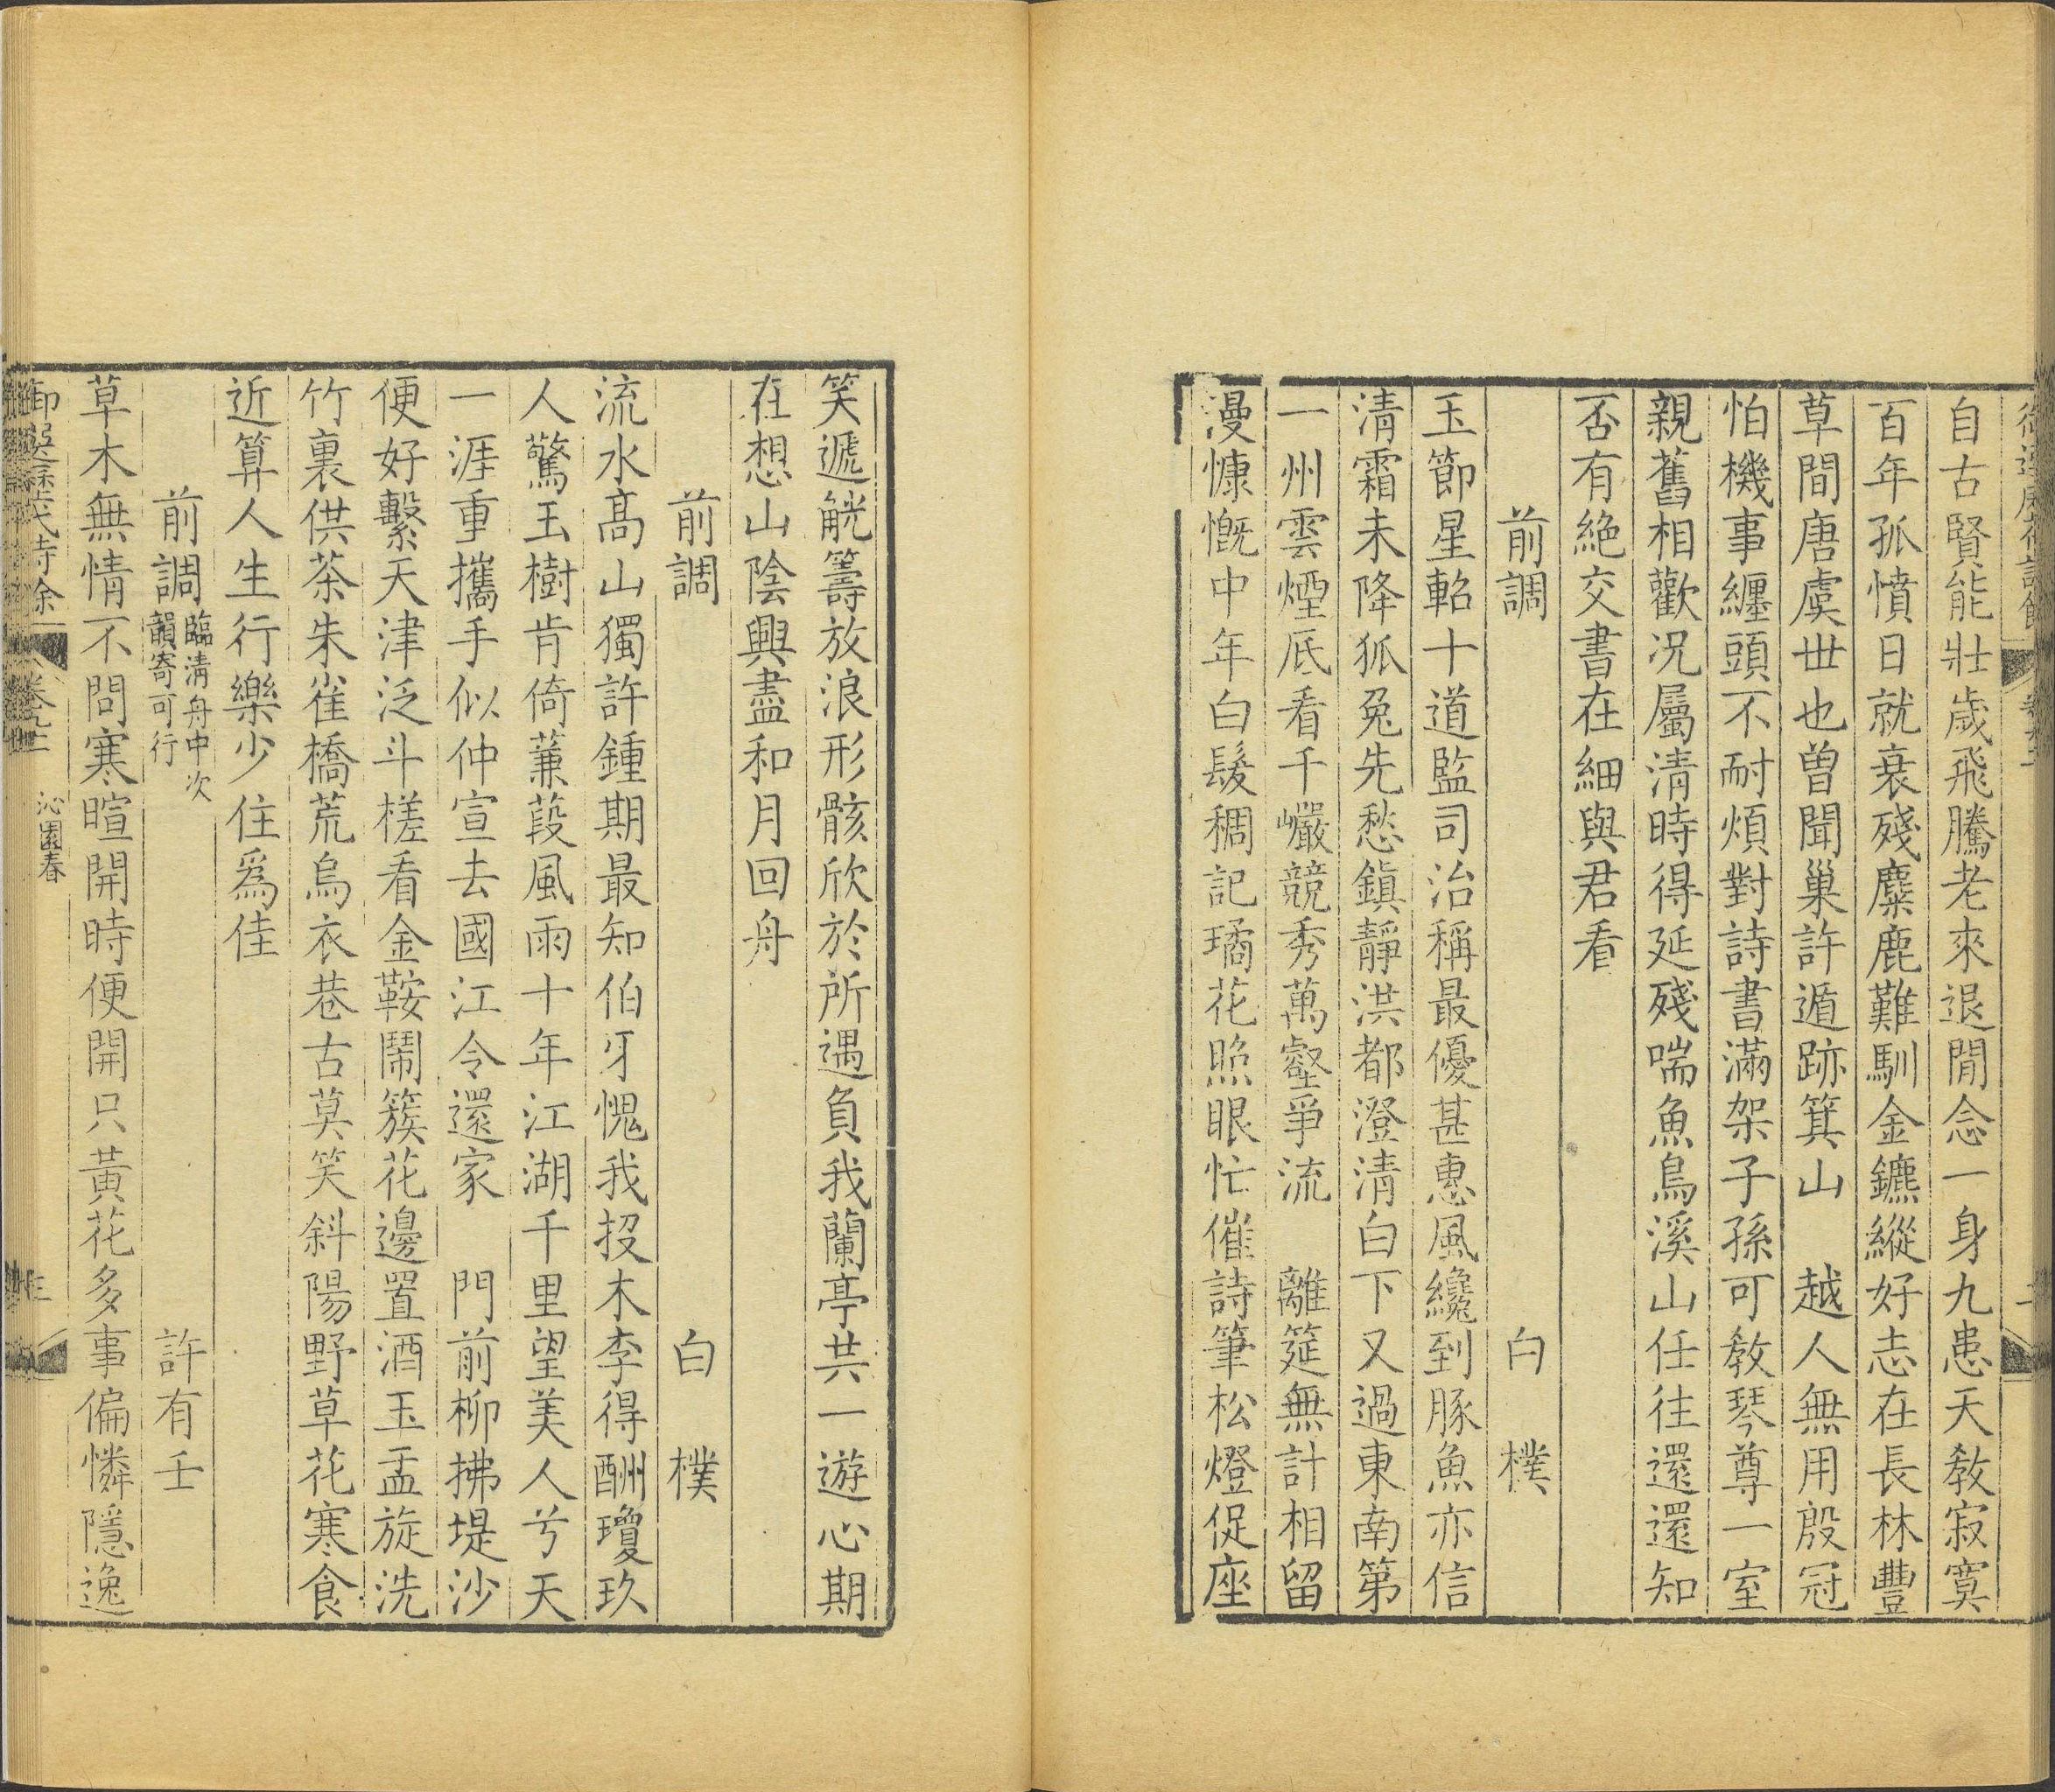 自古賢能壯歲飛騰老來退閒念一身九患天教寂寞
百年孤憤日就衰殘麋鹿難馴金鑣縱好志在長林豐
草間唐虞世也曾聞巢許遁跡箕山　越人無用殷冠
怕機事纏頭不耐煩對詩書滿架子孫可教琴尊一室
親舊相歡況屬清時得延殘喘魚鳥溪山任往還還知
否有絕交書在細與君看
前調　白樸
玉節星軺十道監司治稱最優甚惠風纔到豚魚亦信
清霜未降狐兔先愁鎮靜洪都澄清白下又過東南第
一州雲煙底看千巖競秀萬壑爭流　離筵無計相留
漫慷慨中年白髮稠記璚花照眼忙催詩筆松燈促座
笑遞觥籌放浪形骸欣於所遇負我蘭亭共一遊心期
在想山陰興盡和月回舟
前調　白樸
流水高山獨許鍾期最知伯牙愧我投木李得酬瓊玖
人驚玉樹肯倚蒹葭風雨十年江湖千里望美人兮天
一涯重攜手似仲宣去國江令還家　門前柳拂堤沙
便好繫天津泛斗槎看金鞍鬧簇花邊置酒玉盂旋洗
竹裏供茶朱雀橋荒烏衣巷古莫笑斜陽野草花寒食
近算人生行樂少住爲佳
前調　臨清舟中次韻寄可行　許有壬
草木無情不問寒暄開時便開只黃花多事偏憐隱逸
御選歷代詩餘　卷九十二　沁園春